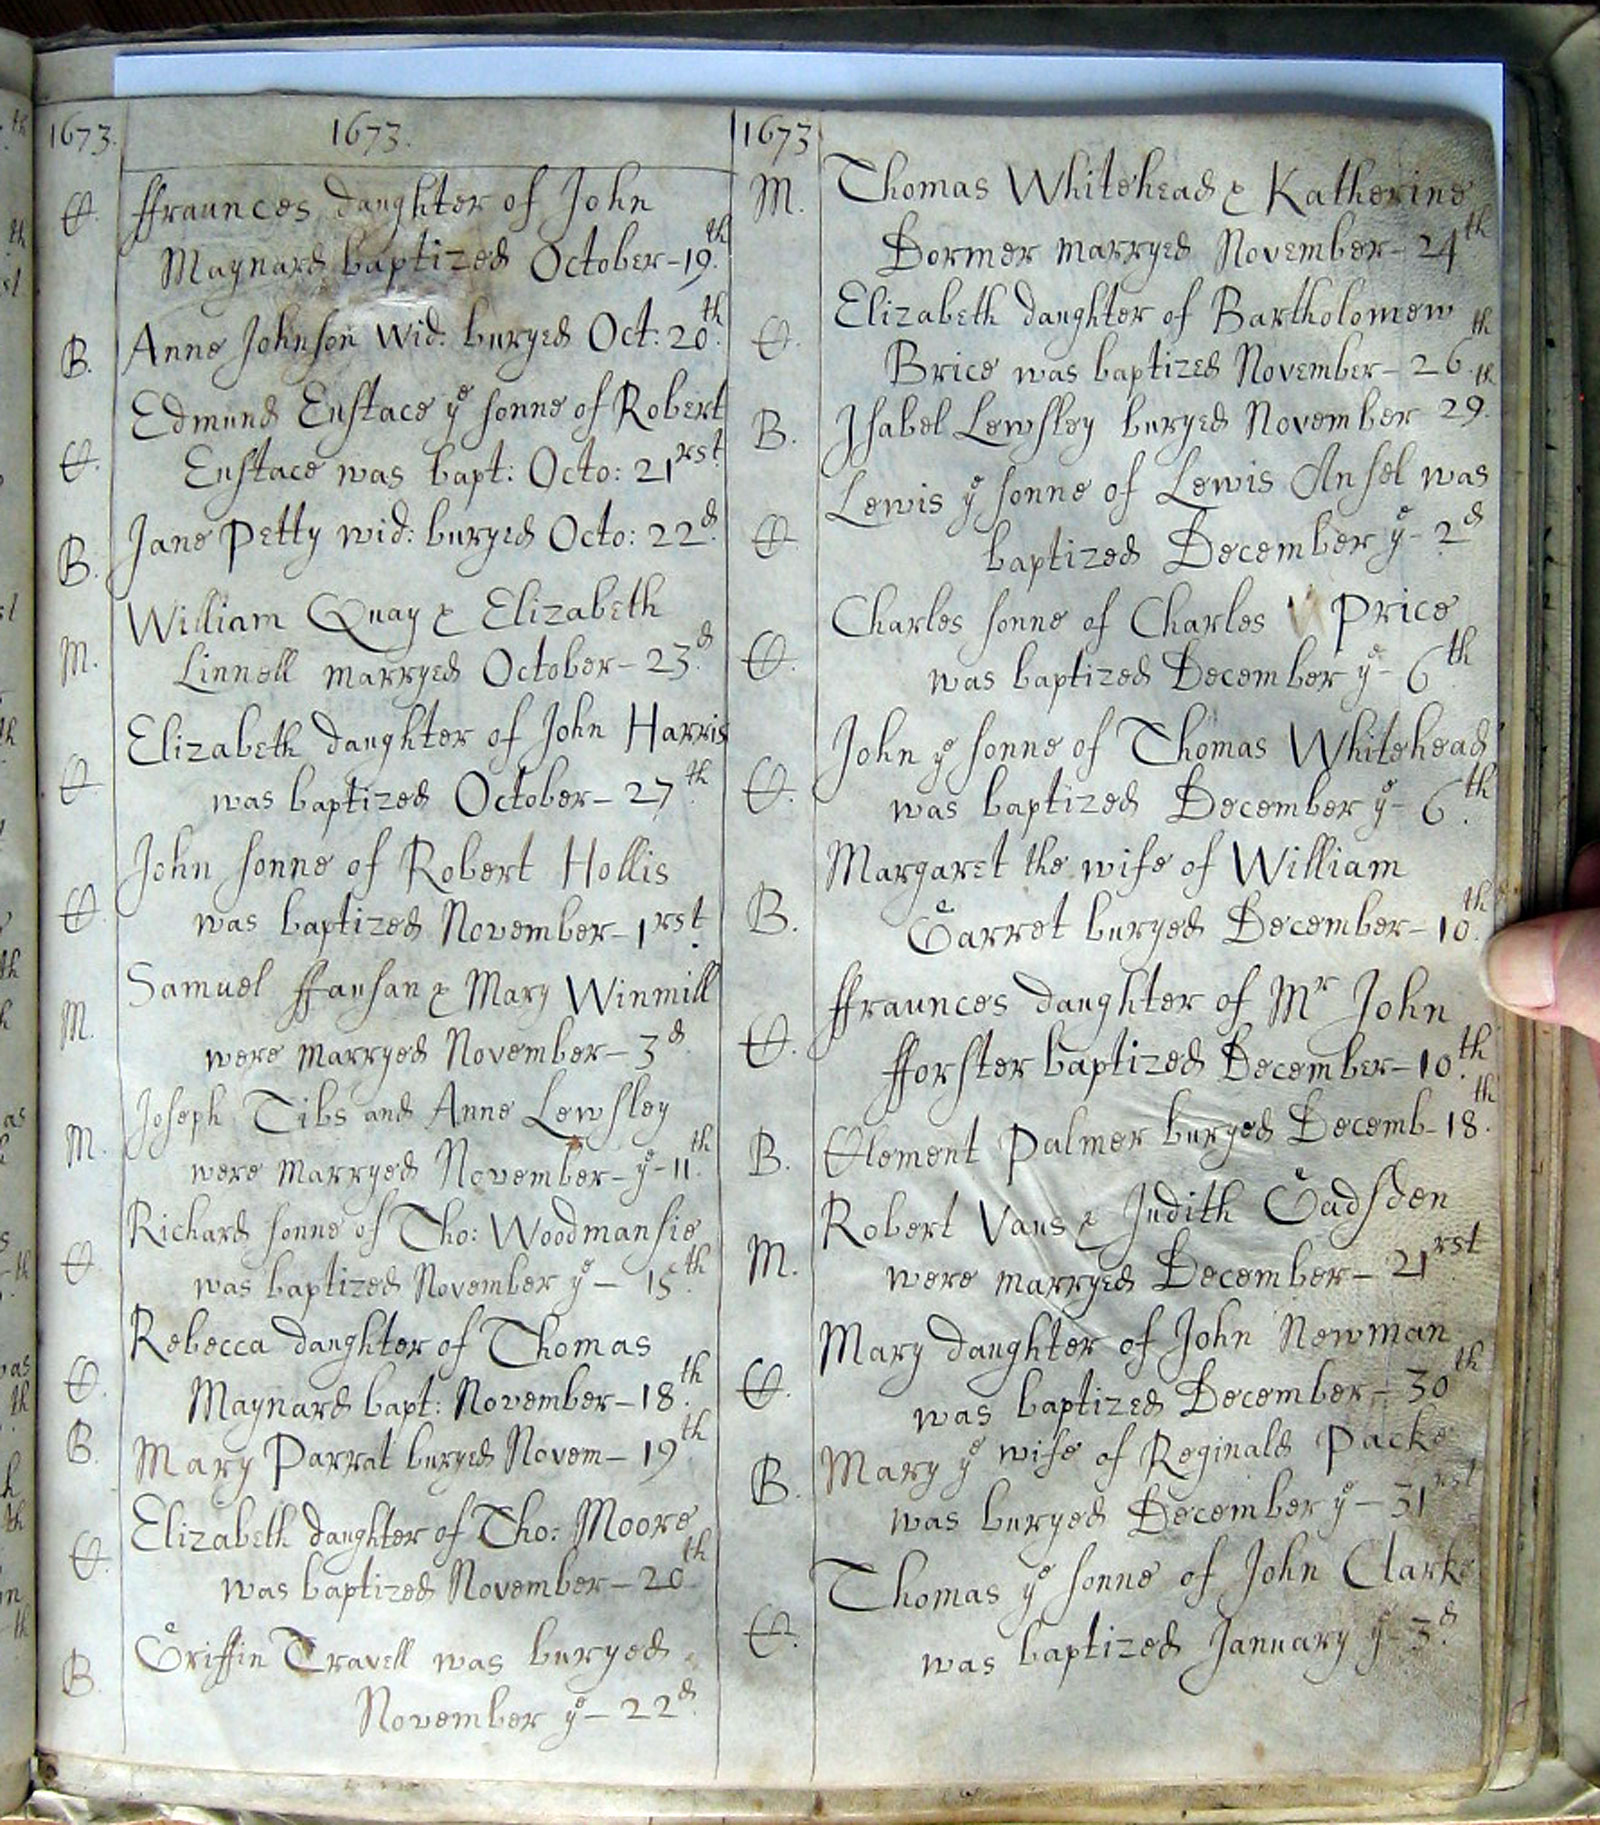 1673.
1673.
C. ffraunces daughter of John
Maynard baptized October - 19th.
B. Anne Johnson Wid: buryed Oct: 20th.
Edmund Eustace ye sonne of Robert
C. Eustace was bapt: Octo: 21rst.
B. Jane Petty wid: buryed Octo: 22d.
William Quay & Elizabeth
M. Linnell marryed October - 23d.
Elizabeth daughter of John Harris
C. was baptized October - 27th.
John sonne of Robert Hollis
C. was baptized November - 1rst.
Samuel ffausan & Mary Winmill
M. were marryed November - 3d.
Joseph Tibs and Anne Lewsley
M. were marryed November - ye - 11th.
Richard sonne of Tho: Woodmansie
C. was baptized November ye - 15th.
Rebecca daughter of Thomas
C. Maynard bapt: November - 18th.
B. Mary Parrat buryed Novem - 19th
Elizabeth daughter of Tho: Moore
C. was baptized November - 20th
Griffin Travell was buryed
B. November ye - 22d.
1673
M. Thomas Whitehead & Katherine
Dormer marryed November - 24th
Elizabeth daughter of Bartholomew
C. Brice was baptized November - 26th.
B. Isabel Lewsley buryed November 29th.
Lewis ye sonne of Lewis Ansel was
C. baptized December ye - 2d
Charles sonne of Charles Price
C. was baptized December ye - 6th
John ye sonne of Thomas Whitehead
C. was baptized December ye - 6th.
Margaret the wife of William
B. Garret buryed December - 10th.
ffraunces daughter of Mr John
C. fforster baptized December - 10th.
B. Clement Palmer buryed Decemb - 18th.
Robert Vaus & Judith Gadsden
M. were marryed December - 21rst
Mary daughter of John Newman
C. was baptized December - 30th
Mary ye wife of Reginald Packe
B. was buryed December ye - 31rst
Thomas ye sonne of John Clarke
C. was baptized January ye - 3d.